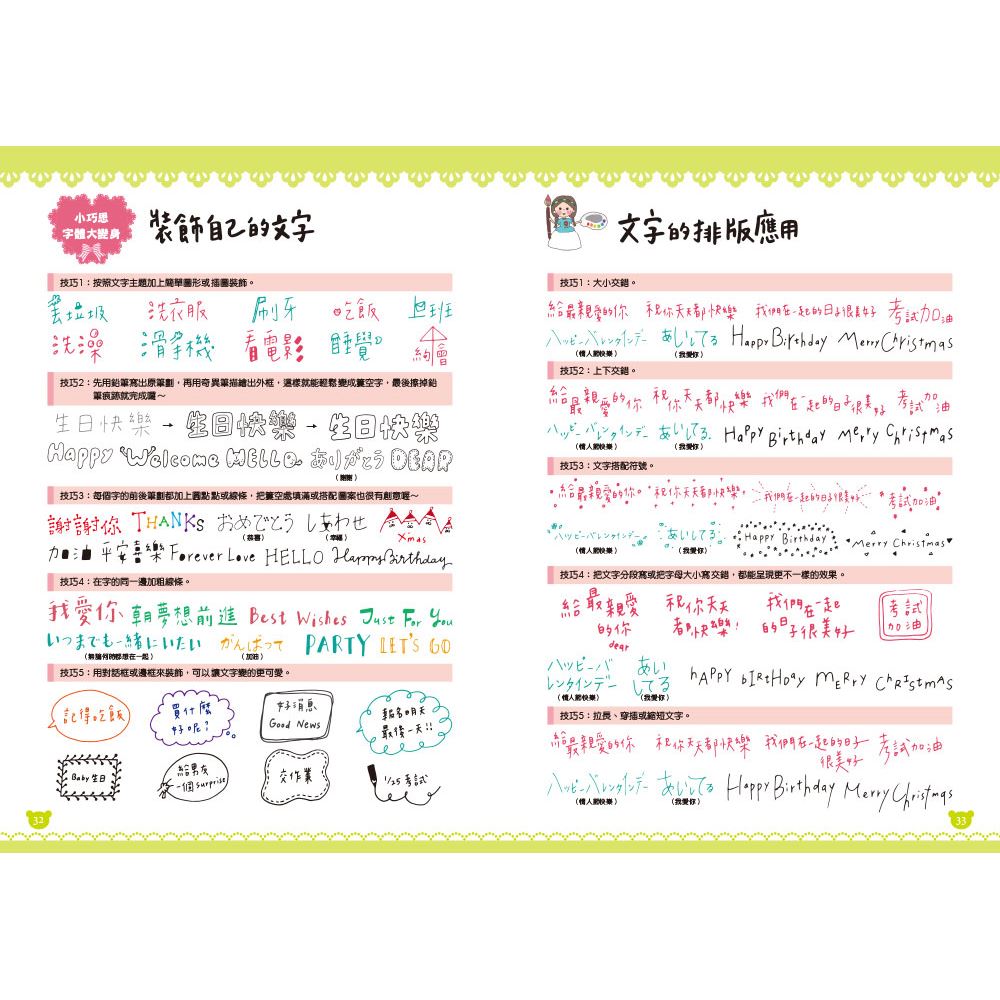 小巧思
字體大變身
裝飾自己的文字
技巧1：按照文字主題加上簡單圖形或插圖裝飾。
丟垃圾 洗衣服 刷牙 吃飯 上班
洗澡 滑手機 看電影 睡覺 約會
技巧2：先用鉛筆寫出原筆劃，再用奇異筆描繪出外框，這樣就能輕鬆變成簍空字，最後擦掉鉛
筆痕跡就完成囉～
生日快樂 → 生日快樂 → 生日快樂
Happy Welcome HELLO ありがとう DEAR
（謝謝）
技巧3：每個字的前後筆劃都加上圓點點或線條，把簍空處填滿或搭配圖案也很有創意喔～
謝謝你 THANKS おめでとう しあわせ Xmas
（恭喜） （幸福）
加油 平安喜樂 Forever Love HELLO Happy Birthday
技巧4：在字的同一邊加粗線條。
我愛你 朝夢想前進 Best Wishes Just For You
いつまでも一緒にいたい がんばって PARTY LET'S GO
（無論何時都想在一起） （加油）
技巧5：用對話框或邊框來裝飾，可以讓文字變的更可愛。
記得吃飯
買什麼
好呢？
好消息
Good News
報名明天
最後一天!!
Baby生日
給男友
一個surprise
交作業
1/25考試
32
文字的排版應用
技巧1：大小交錯。
給最親愛的你 祝你天天都快樂 我們在一起的日子很美好 考試加油
ハッピーバレンタインデー あいしてる Happy Birthday Merry Christmas
（情人節快樂） （我愛你）
技巧2：上下交錯。
給最親愛的你 祝你天天都快樂 我們在一起的日子很美好 考試加油
ハッピーバレンタインデー あいしてる Happy Birthday Merry Christmas
（情人節快樂） （我愛你）
技巧3：文字搭配符號。
給最親愛的你 祝你天天都快樂 我們在一起的日子很美好 考試加油
ハッピーバレンタインデー あいしてる Happy Birthday Merry Christmas
（情人節快樂） （我愛你）
技巧4：把文字分段寫或把字母大小寫交錯，都能呈現更不一樣的效果。
給最親愛
的你
dear
祝你天天
都快樂！
我們在一起
的日子很美好
考試
加油
ハッピーバ
レンタインデー
（情人節快樂）
あい
してる
（我愛你）
hAPPY bIRtHDay MERRy ChRIStmAs
技巧5：拉長、穿插或縮短文字。
給最親愛的你 祝你天天都快樂 我們在一起的日子很美好 考試加油
ハッピーバレンタインデー あいしてる Happy Birthday Merry Christmas
（情人節快樂） （我愛你）
33